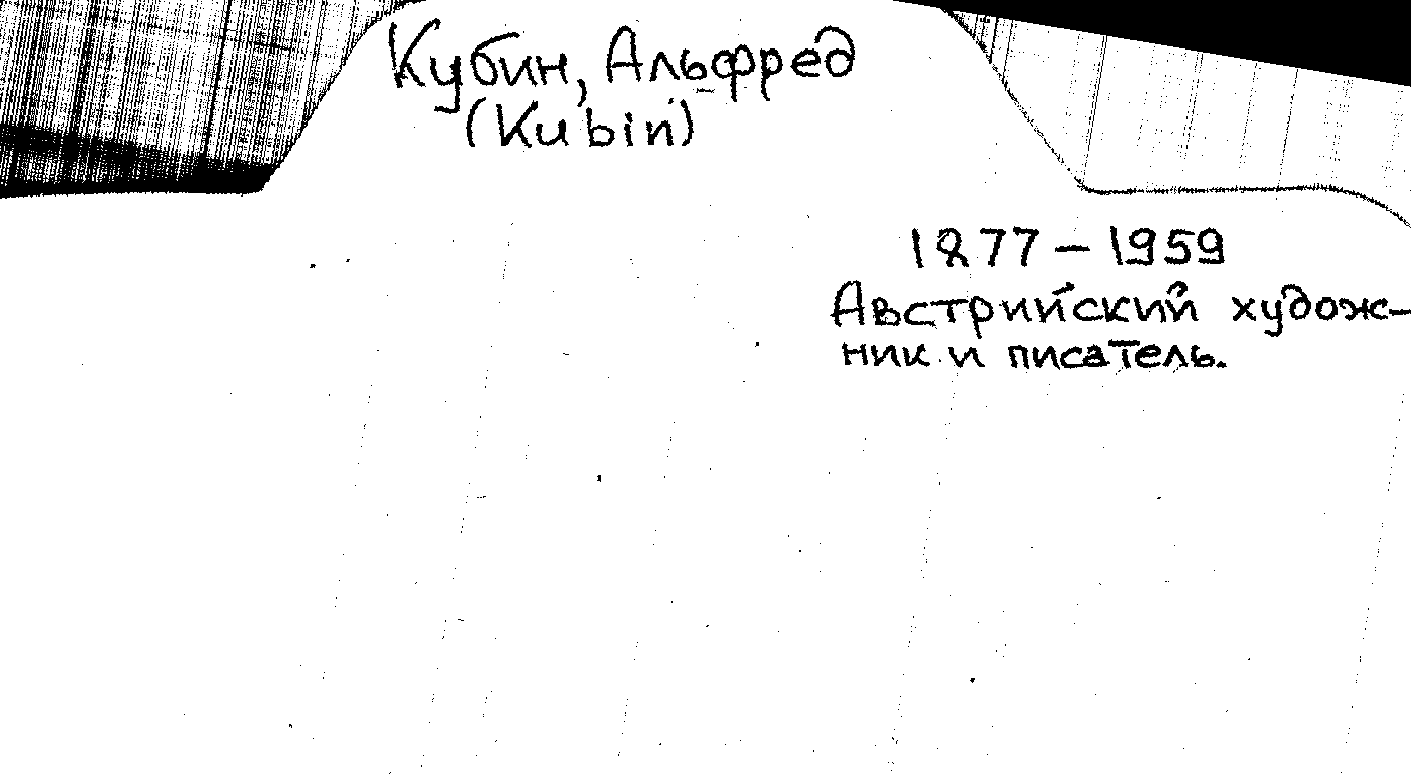 Кубин, Альфред
(Kubin)
1877 – 1959
Австрийский худож-
ник и писатель.